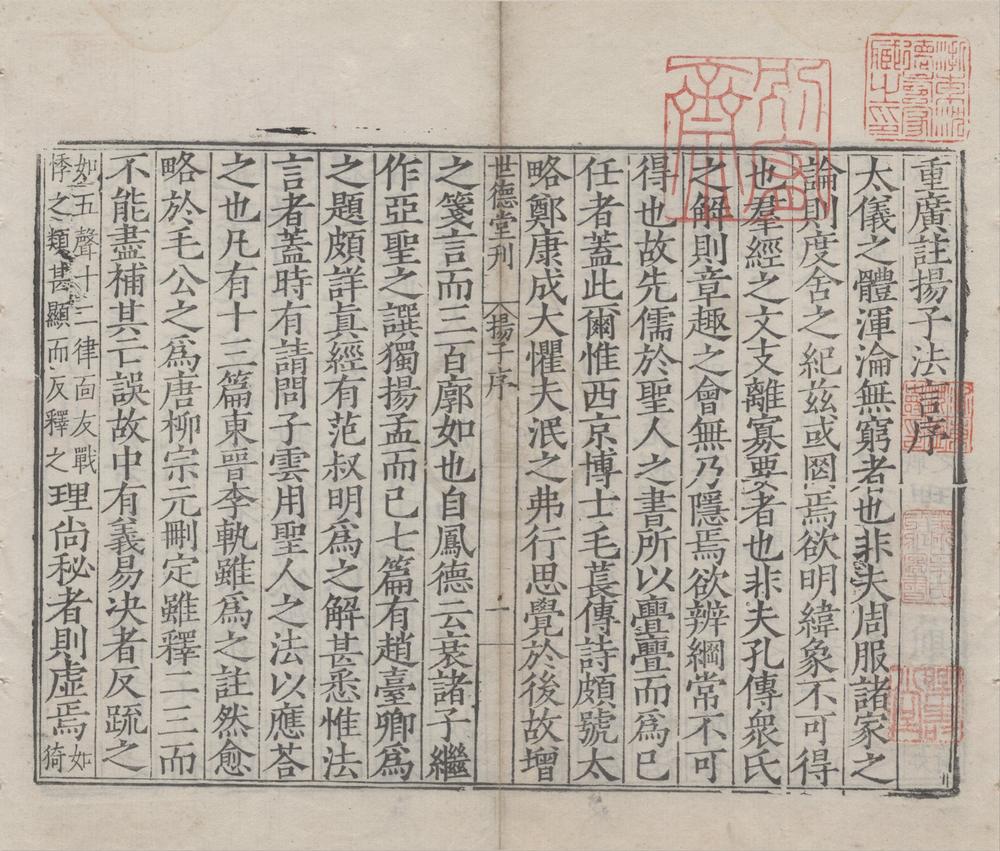 重廣註揚子法言序
太儀之體渾淪無窮者也非夫周服諸家之
論則度舍之紀茲或罔焉欲明緯象不可得
也羣經之文支離寡要者也非夫孔傳衆氏
之解則章趣之會無乃隱焉欲辨綱常不可
得也故先儒於聖人之書所以亹亹而爲已
任者蓋此爾惟西京博士毛萇傳詩頗號太
略鄭康成大懼夫泯之弗行思覺於後故增
世德堂刊 揚子序 一
之箋言而三百廓如也自鳳德云衰諸子繼
作亞聖之譔獨揚孟而已七篇有趙臺卿爲
之題頗詳眞經有范叔明爲之解甚悉惟法
言者蓋時有請問子雲用聖人之法以應荅
之也凡有十三篇東晉李軌雖爲之註然愈
略於毛公之爲唐柳宗元刪定雖釋二三而
不能盡補其亡誤故中有義易决者反疏之
如五聲十二律面友戰
悸之類甚顯而反釋之
理尙秘者則虛焉
如
猗